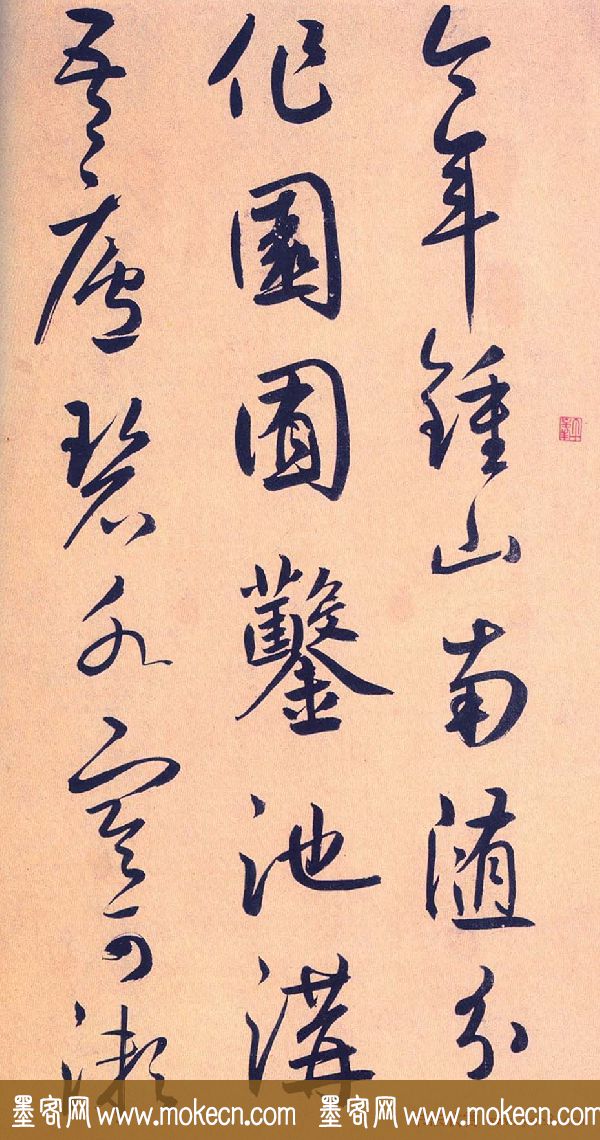 今年鍾山南随分
作園囿鑿池溝
吾廬碧水寒可漱
墨客网 www.mokecn.com 墨客网 www.mokecn.com